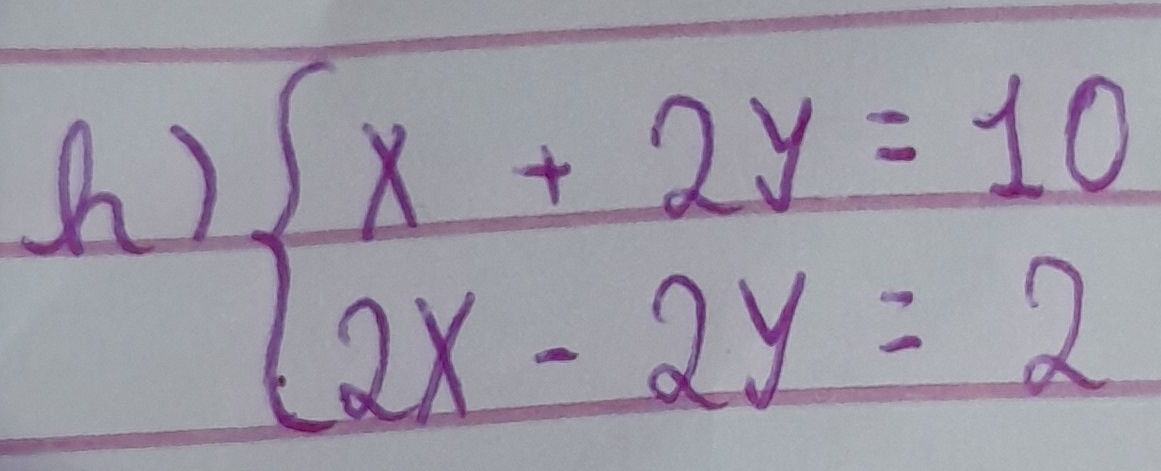 h) { x + 2y = 10
2x - 2y = 2